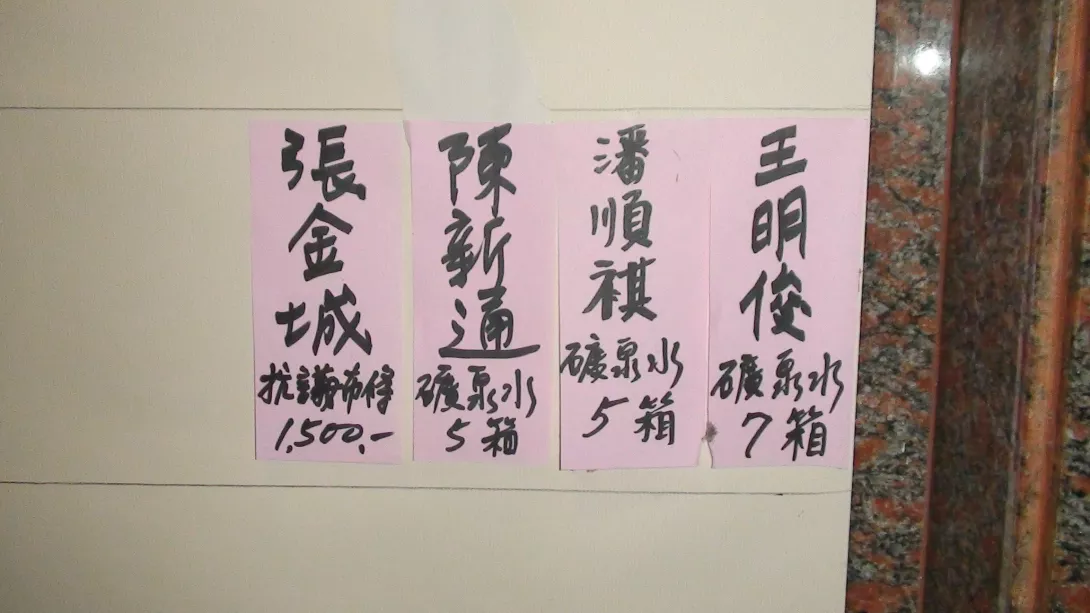 王明俊
礦泉水
7箱
潘順祺
礦泉水
5箱
陳新通
礦泉水
5箱
張金城
抗議布條
1,500.-